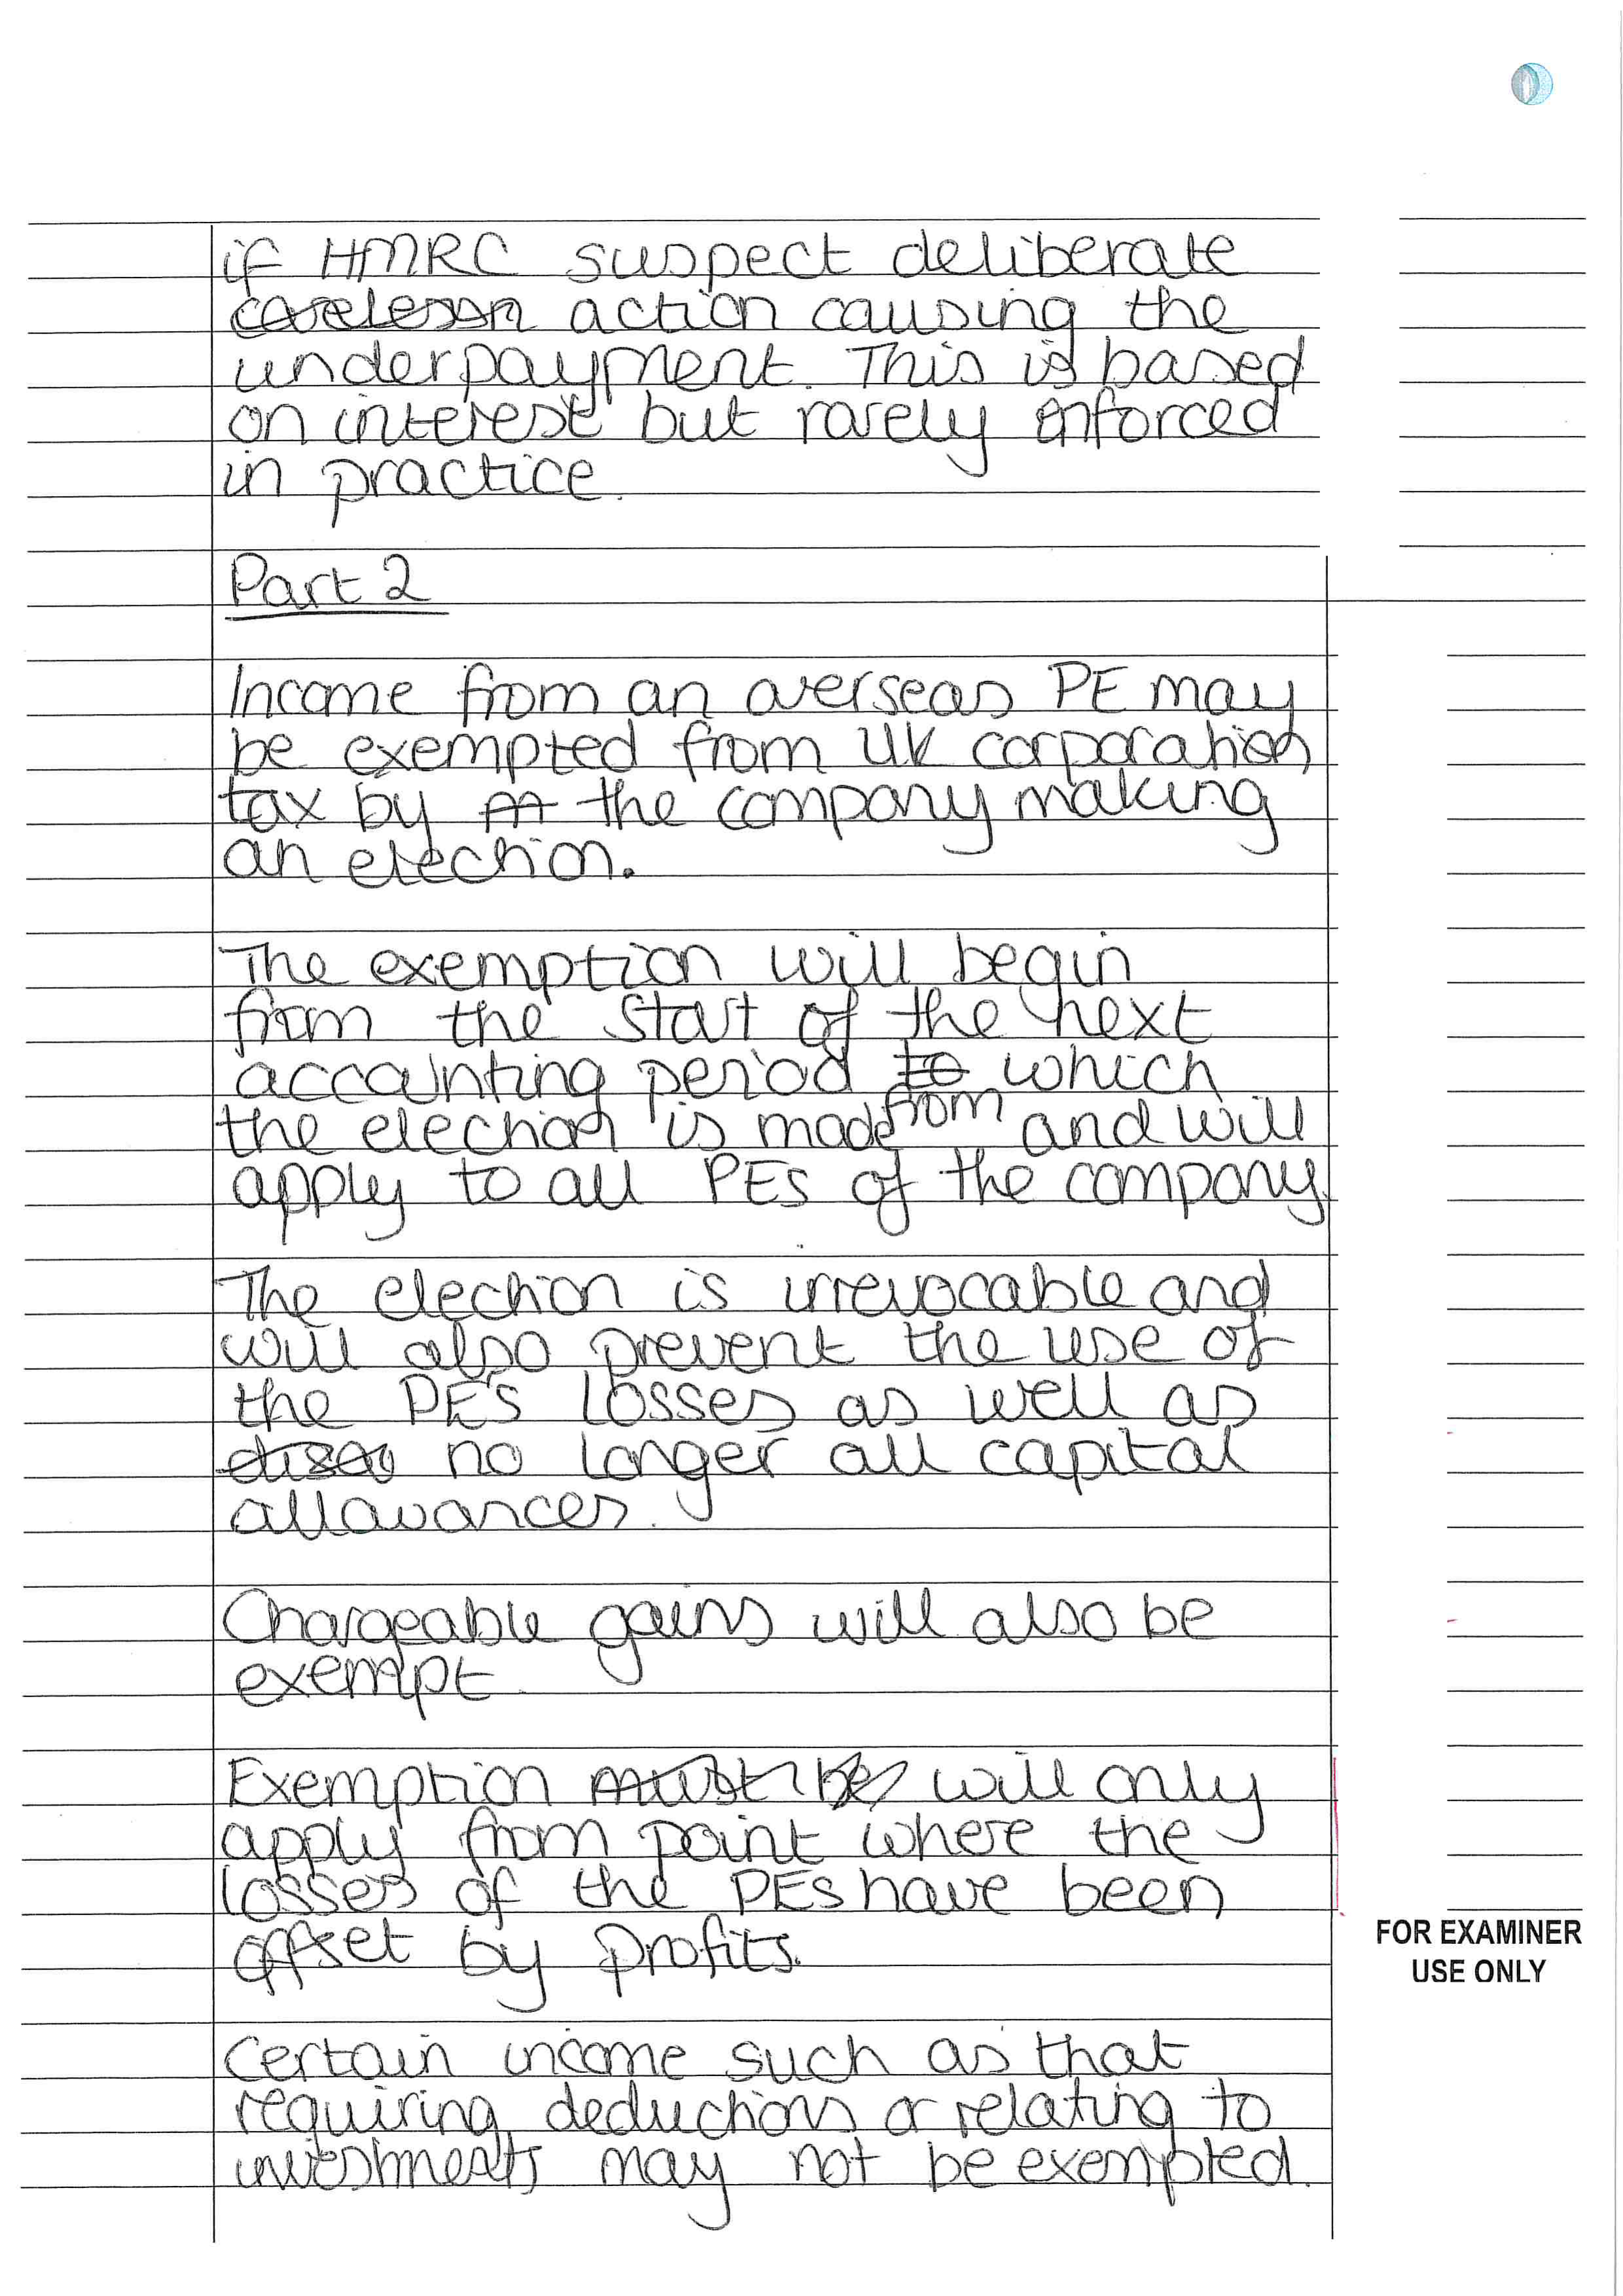 if HMRC suspect deliberate
action causing the
underpayment. This is based
on interest but rarely enforced
in practice.
Part 2
Income from an overseas PE may
be exempted from UK corporation
tax by the company making
an election.
The exemption will begin
from the start of the next
accounting period to which
the election is made from and will
apply to all PEs of the company.
The election is irrevocable and
will also prevent the use of
the PE's losses as well as
no longer all capital
allowances.
Chargeable gains will also be
exempt.
Exemption must be will only
apply from point where the
losses of the PEs have been
offset by profits.
Certain income such as that
requiring deductions or relating to
investments may not be exempted.
FOR EXAMINER
USE ONLY